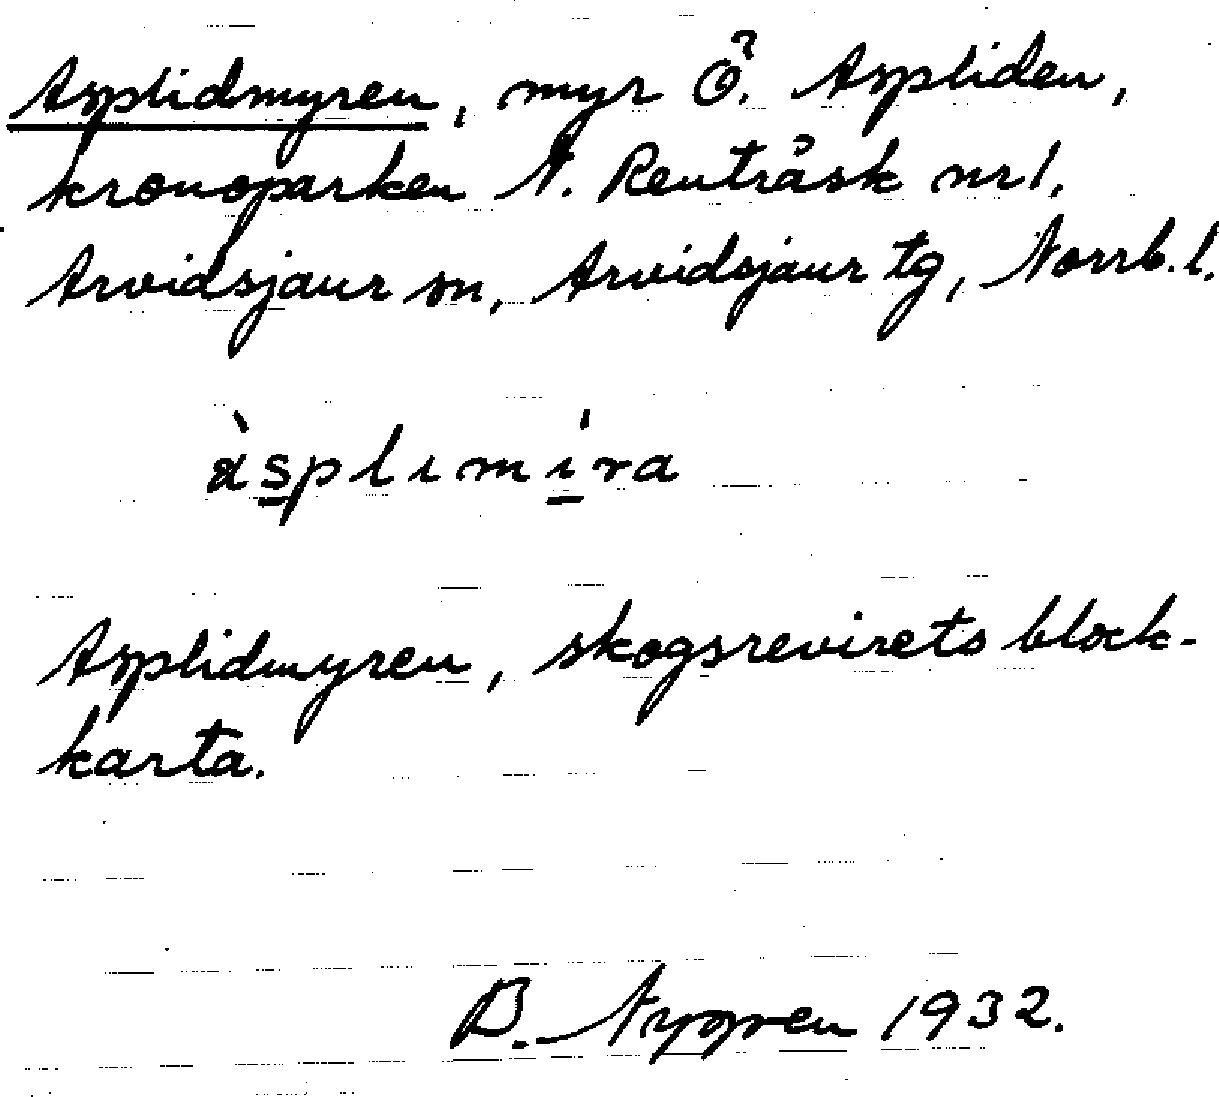 Asplidmyren, myr Ö. Aspliden,
kronoparken N. Renträsk nr 1,
Arvidsjaur sn, Arvidsjaur tg, Norrb. l.
àsplımíra
Asplidmyren, skogsrevirets block-
karta.
B. Nygren 1932.